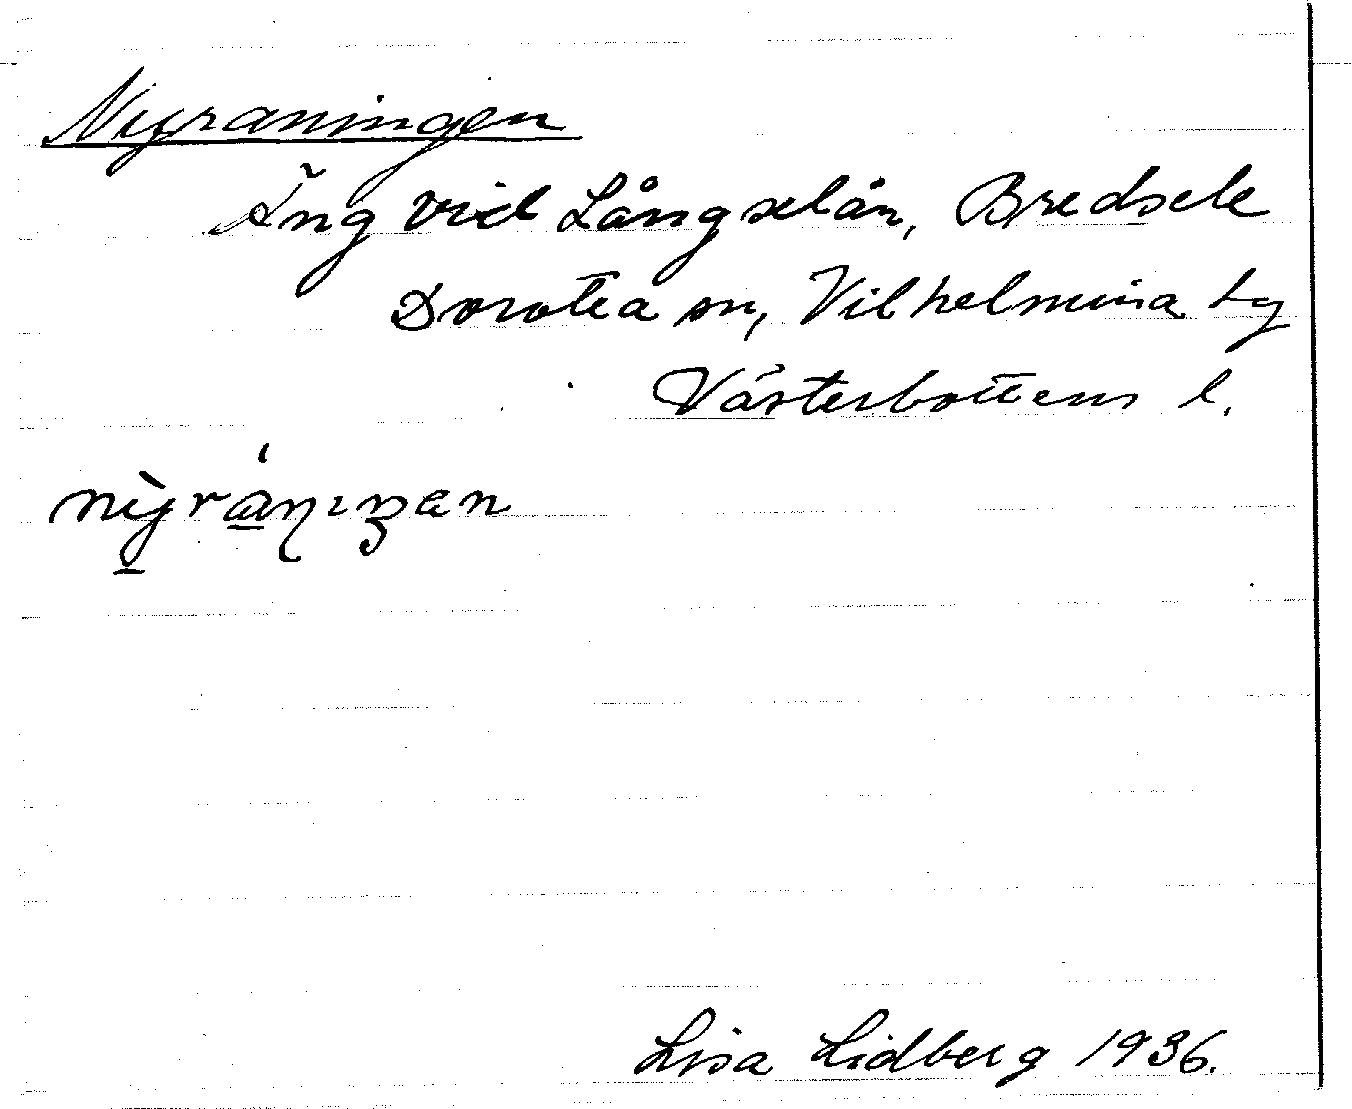 Nyraningen
Äng vid Långselån, Bredsele
Dorotea sn, Vilhelmina tg
Västerbottens l.
nỳránıŋen
Lisa Lidberg 1936.